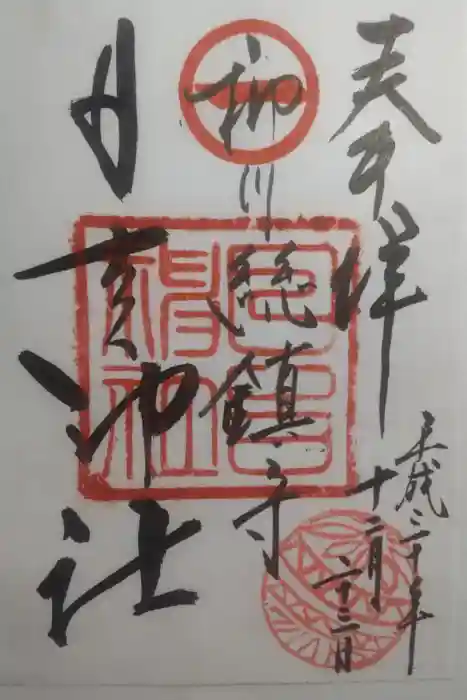 奉拝
平成三十年
十二月
二十三日
柳川総鎮守
日吉神社
日吉
神社